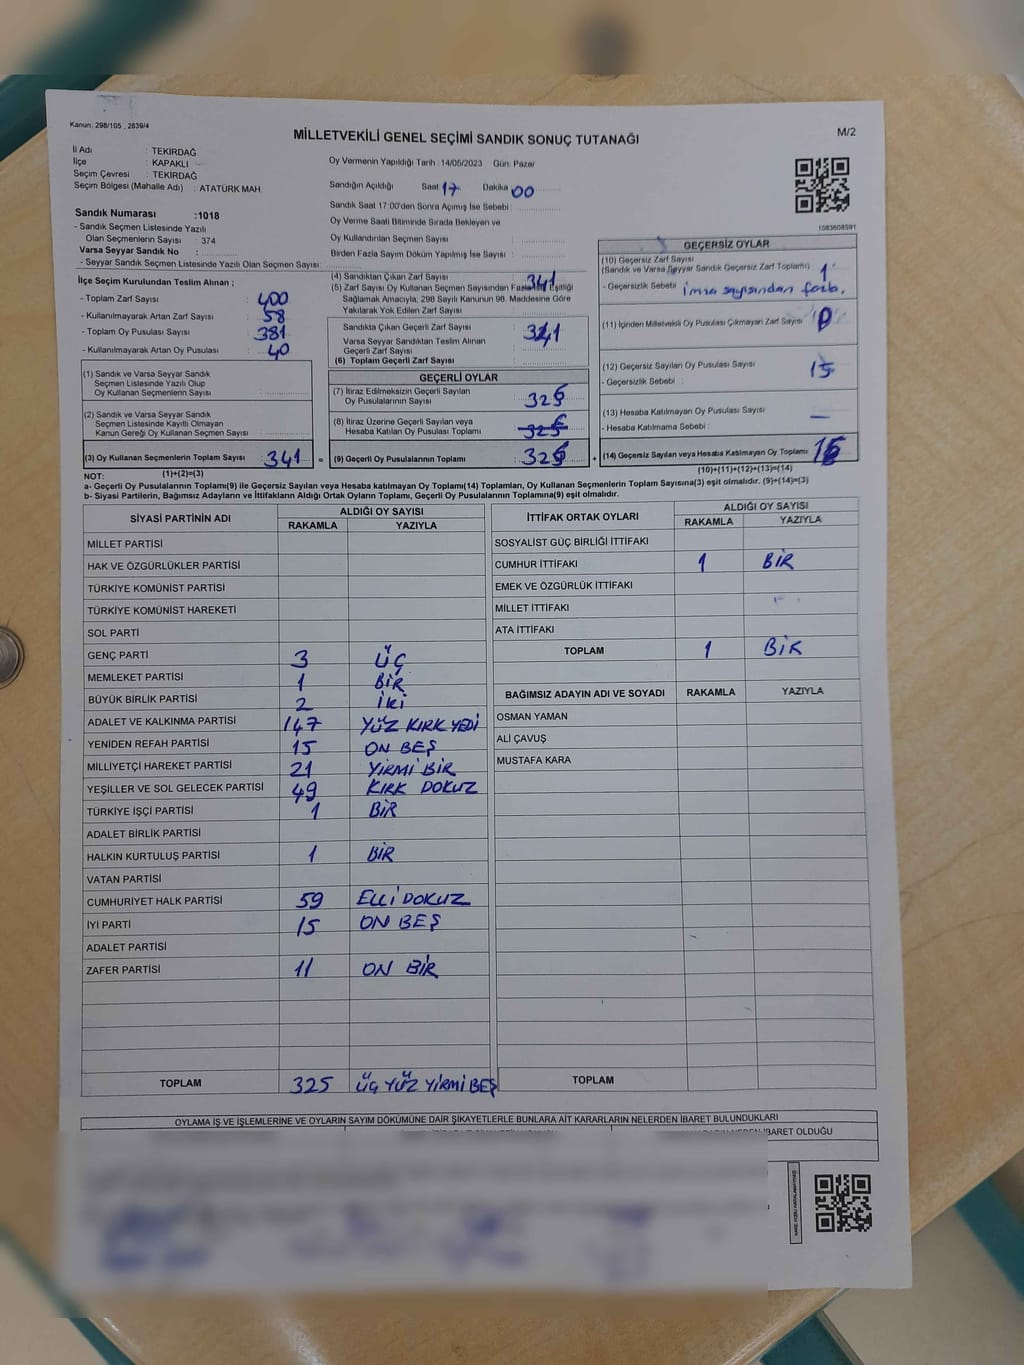 Kanun: 298/105 , 2839/4
MİLLETVEKİLİ GENEL SEÇİMİ SANDIK SONUÇ TUTANAĞI
M/2
İl Adı : TEKİRDAĞ
İlçe : KAPAKLI
Seçim Çevresi : TEKİRDAĞ
Seçim Bölgesi (Mahalle Adı) : ATATÜRK MAH.
Sandık Numarası :1018
- Sandık Seçmen Listesinde Yazılı
Olan Seçmenlerin Sayısı 374
Varsa Seyyar Sandık No :
- Seyyar Sandık Seçmen Listesinde Yazılı Olan Seçmen Sayısı:
Oy Vermenin Yapıldığı Tarih :14/05/2023 Gün: Pazar
Sandığın Açıldığı Saat 17 Dakika 00
Sandık Saat 17:00'den Sonra Açımış İse Sebebi :
Oy Verme Saati Bitiminde Sırada Bekleyen ve
Oy Kullandırılan Seçmen Sayısı :
Birden Fazla Sayım Döküm Yapılmış İse Sayısı :
1083608591
İlçe Seçim Kurulundan Teslim Alınan ;
- Toplam Zarf Sayısı : 400
- Kullanılmayarak Artan Zarf Sayısı : 58
- Toplam Oy Pusulası Sayısı : 381
- Kullanılmayarak Artan Oy Pusulası : 40
(1) Sandık ve Varsa Seyyar Sandık
Seçmen Listesinde Yazılı Olup
Oy Kullanan Seçmenlerin Sayısı :
(2) Sandık ve Varsa Seyyar Sandık
Seçmen Listesinde Kayıtlı Olmayan
Kanun Gereği Oy Kullanan Seçmen Sayısı :
(3) Oy Kullanan Seçmenlerin Toplam Sayısı : 341
(1)+(2)=(3)
(4) Sandıktan Çıkan Zarf Sayısı : 341
(5) Zarf Sayısı Oy Kullanan Seçmen Sayısından Fazla İse Eşitliği
Sağlamak Amacıyla, 298 Sayılı Kanunun 98. Maddesine Göre
Yakılarak Yok Edilen Zarf Sayısı :
Sandıkta Çıkan Geçerli Zarf Sayısı : 341
Varsa Seyyar Sandıktan Teslim Alınan
Geçerli Zarf Sayısı :
(6) Toplam Geçerli Zarf Sayısı :
GEÇERLİ OYLAR
(7) İtiraz Edilmeksizin Geçerli Sayılan
Oy Pusulalarının Sayısı : 326
(8) İtiraz Üzerine Geçerli Sayılan veya
Hesaba Katılan Oy Pusulası Toplamı :
= (9) Geçerli Oy Pusulalarının Toplamı : 326 +
GEÇERSİZ OYLAR
(10) Geçersiz Zarf Sayısı
(Sandık ve Varsa Seyyar Sandık Geçersiz Zarf Toplamı) : 1
- Geçersizlik Sebebi : İmza sayısından fazla.
(11) İçinden Milletvekili Oy Pusulası Çıkmayan Zarf Sayısı : 0
(12) Geçersiz Sayılan Oy Pusulası Sayısı : 15
- Geçersizlik Sebebi :
(13) Hesaba Katılmayan Oy Pusulası Sayısı : —
- Hesaba Katılmama Sebebi :
(14) Geçersiz Sayılan veya Hesaba Katılmayan Oy Toplamı :
(10)+(11)+(12)+(13)=(14)
NOT:
a- Geçerli Oy Pusulalarının Toplamı(9) ile Geçersiz Sayılan veya Hesaba katılmayan Oy Toplamı(14) Toplamları, Oy Kullanan Seçmenlerin Toplam Sayısına(3) eşit olmalıdır. (9)+(14)=(3)
b- Siyasi Partilerin, Bağımsız Adayların ve İttifakların Aldığı Ortak Oyların Toplamı, Geçerli Oy Pusulalarının Toplamına(9) eşit olmalıdır.
SİYASİ PARTİNİN ADI ALDIĞI OY SAYISI
RAKAMLA YAZIYLA
MİLLET PARTİSİ
HAK VE ÖZGÜRLÜKLER PARTİSİ
TÜRKİYE KOMÜNİST PARTİSİ
TÜRKİYE KOMÜNİST HAREKETİ
SOL PARTİ
GENÇ PARTİ 3 ÜÇ
MEMLEKET PARTİSİ 1 BİR
BÜYÜK BİRLİK PARTİSİ 2 İKİ
ADALET VE KALKINMA PARTİSİ 147 YÜZ KIRK YEDİ
YENİDEN REFAH PARTİSİ 15 ON BEŞ
MİLLİYETÇİ HAREKET PARTİSİ 21 YİRMİ BİR
YEŞİLLER VE SOL GELECEK PARTİSİ 49 KIRK DOKUZ
TÜRKİYE İŞÇİ PARTİSİ 1 BİR
ADALET BİRLİK PARTİSİ
HALKIN KURTULUŞ PARTİSİ 1 BİR
VATAN PARTİSİ
CUMHURİYET HALK PARTİSİ 59 ELLİ DOKUZ
İYİ PARTİ 15 ON BEŞ
ADALET PARTİSİ
ZAFER PARTİSİ 11 ON BİR
TOPLAM 325 ÜÇ YÜZ YİRMİ BEŞ
İTTİFAK ORTAK OYLARI ALDIĞI OY SAYISI
RAKAMLA YAZIYLA
SOSYALİST GÜÇ BİRLİĞİ İTTİFAKI
CUMHUR İTTİFAKI 1 BİR
EMEK VE ÖZGÜRLÜK İTTİFAKI
MİLLET İTTİFAKI
ATA İTTİFAKI
TOPLAM 1 BİR
BAĞIMSIZ ADAYIN ADI VE SOYADI RAKAMLA YAZIYLA
OSMAN YAMAN
ALİ ÇAVUŞ
MUSTAFA KARA
TOPLAM
OYLAMA İŞ VE İŞLEMLERİNE VE OYLARIN SAYIM DÖKÜMÜNE DAİR ŞİKAYETLERLE BUNLARA AİT KARARLARIN NELERDEN İBARET BULUNDUKLARI
İBARET OLDUĞU